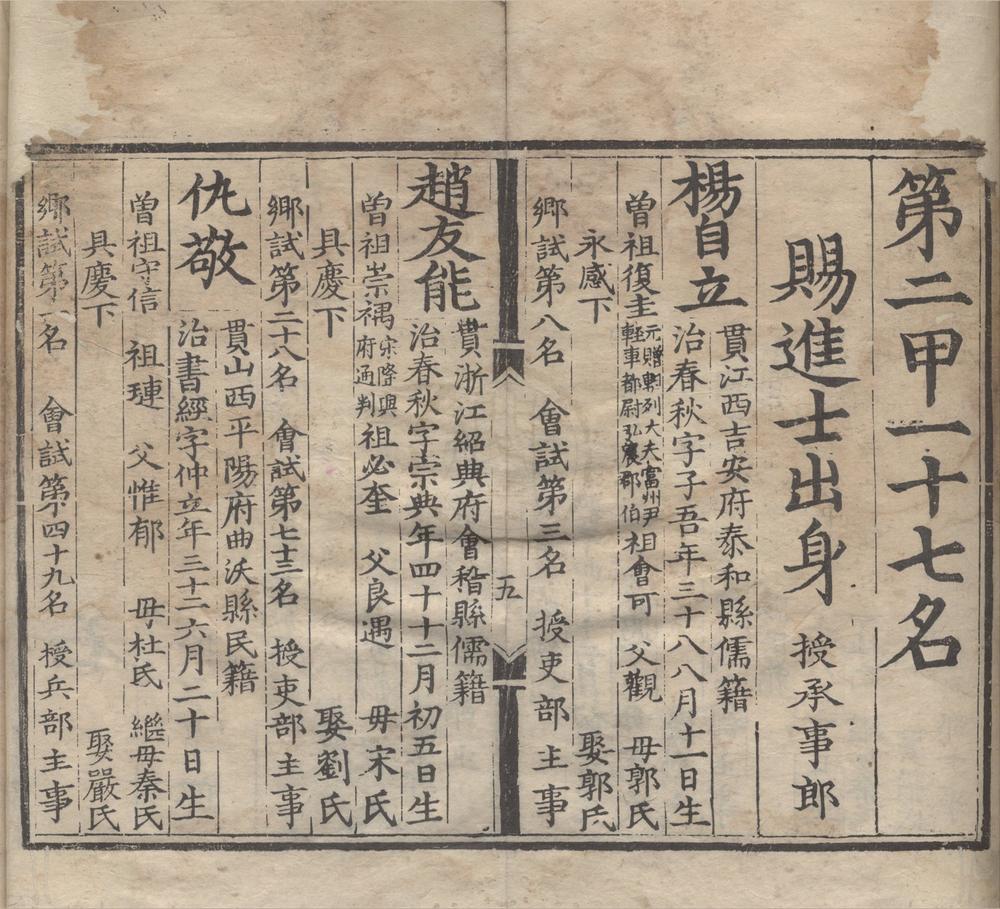 第二甲一十七名
賜進士出身 授承事郎
楊自立
貫江西吉安府泰和縣儒籍
治春秋字子吾年三十八八月十一日生
曾祖復圭 元贈朝列大夫富州尹輕車都尉弘農郡伯 祖會可 父觀 母郭氏
永感下 娶郭氏
鄉試第八名 會試第三名 授吏部主事
五
趙友能
貫浙江紹興府會稽縣儒籍
治春秋字崇典年四十十二月初五日生
曾祖崇禑 宋際興府通判 祖必奎 父良遇 母宋氏
具慶下 娶劉氏
鄉試第二十八名 會試第七十三名 授吏部主事
仇敬
貫山西平陽府曲沃縣民籍
治書經字仲立年三十二六月二十日生
曾祖守信 祖璉 父惟郁 母杜氏 繼母秦氏
具慶下 娶嚴氏
鄉試第 名 會試第 四十九名 授兵部主事